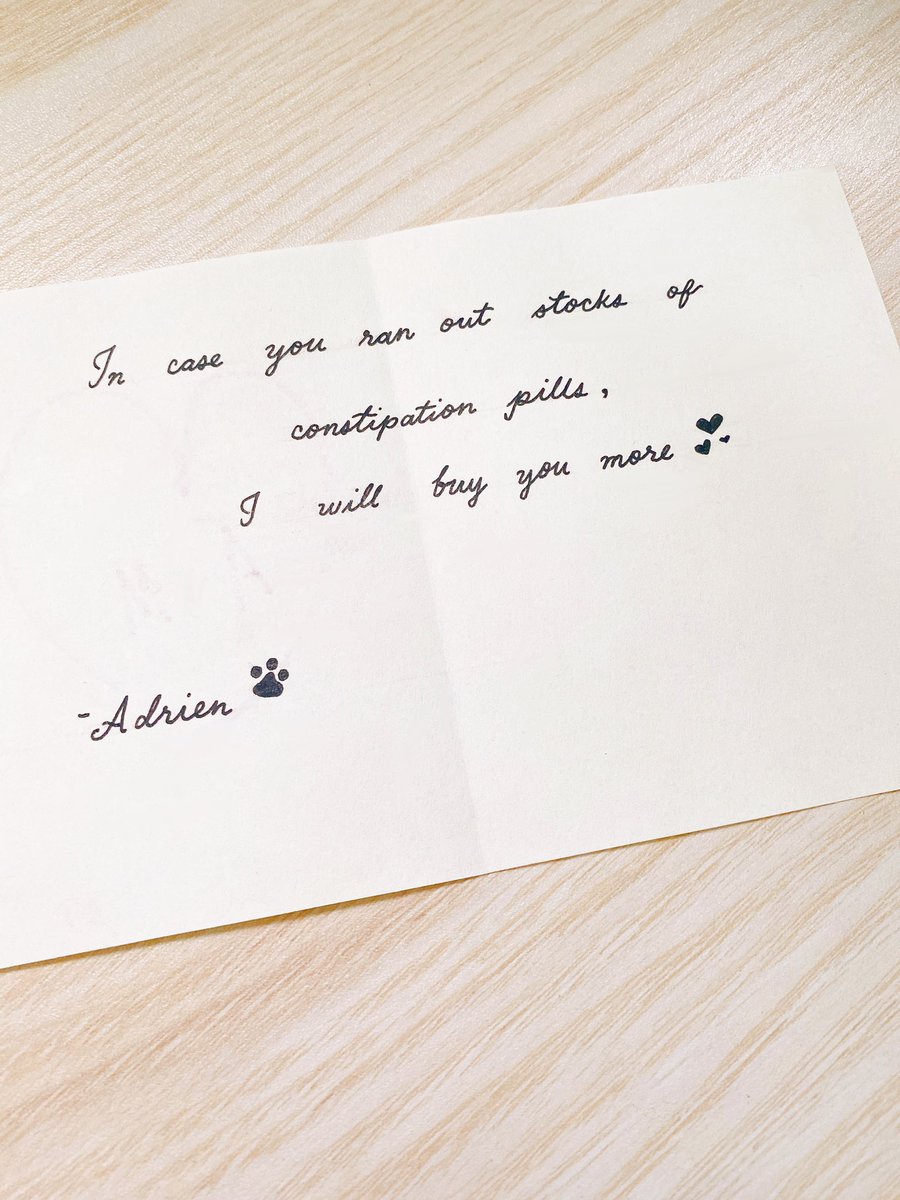 In case you ran out stocks of
constipation pills,
I will buy you more
-Adrien